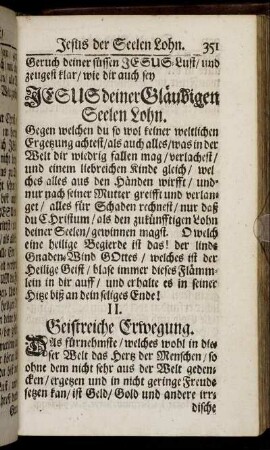 Jesus der Seelen Lohn. 351
Geruch deiner süssen JESUS-Lust/ und
zeugest klar/ wie dir auch sey
JESUS deiner Gläubigen
Seelen Lohn.
Gegen welchen du so wol keiner weltlichen
Ergetzung achtest/ als auch alles/ was in der
Welt dir wiedrig fallen mag/ verlachest/
und einem liebreichen Kinde gleich/ wel
ches alles aus den Händen wirfft/ und
nur nach seiner Mutter greifft und verlan-
get/ alles für Schaden rechnest/ nur daß
du Christum/ als den zukünfftigen Lohn
deiner Seelen/ gewinnen magst. O welch
eine heilige Begierde ist das! der linde
Gnaden-Wind GOttes/ welches ist der
Heilige Geist/ blase immer dieses Flämm-
lein in dir auff/ und erhalte es in seiner
Hitze biß an dein seliges Ende!
II.
Geistreiche Erwegung.
DAs fürnehmste/ welches wohl in die-
ser Welt das Hertz der Menschen/ so
ohne dem nicht sehr aus der Welt geden-
cken/ ergetzen und in nicht geringe Freude
setzen kan/ ist Geld/ Gold und andere irr-
dische